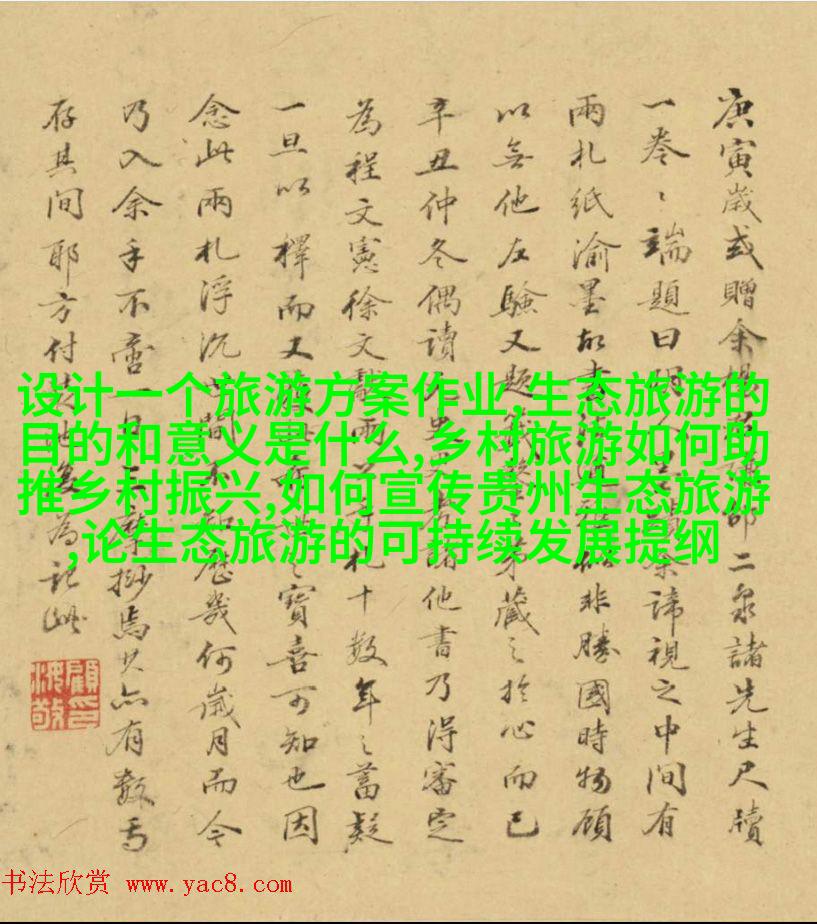 庚寅歲或贈余楊
二泉諸先生尺牘
一卷〻端題曰
諦視之中間有
兩札紙渝墨
非勝國時物顧
以無他左驗又題
第藏之於心而已
辛丑仲冬偶讀
他書乃得審定
為程文憲徐文
兩
札十數年〻蓄疑
一旦以釋而又
寶喜可知也因
念此兩札浮沉
歷幾何歲月而今
乃入余手不
焉其亦有數焉
存其間耶方付
為記此
设计一个旅游方案作业,生态旅游的
目的和意义是什么,乡村旅游如何助
推乡村振兴,如何宣传贵州生态旅游
,论生态旅游的可持续发展提纲
书法欣赏 www.yac8.com